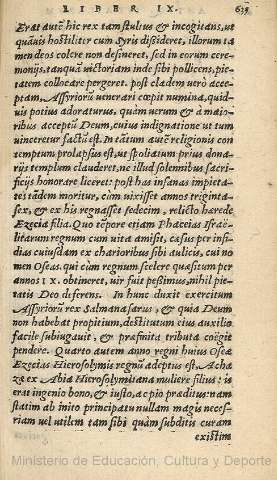 LIBER IX.
639
Erat autē hic rex tam stultus & incogitans, ut
quāuis hostiliter cum Syris dissideret, illorum ta
men deos colere non desineret, sed in eorum cere-
monijs, tanquā victoriam inde sibi pollicens, pie-
tatem collocare pergeret. post cladem uerò acce-
ptam, Assyriorū uenerari cœpit numina, quid-
uis potius adoraturus, quàm uerum & à maio-
ribus acceptū Deum, cuius indignatione ut tum
uinceretur factū est. In tātum autē religionis con
temptum prolapsus est, ut spoliatum prius dona-
rijs templum clauderet, ne illud solemnibus sacri-
ficijs honorare liceret: post has insanas impieta-
tes tādem moritur, cùm uixisset annos triginta-
sex, & ex his regnasset sedecim, relicto hærede
Ezecia filio. Quo tēpore etiam Phaceias Israë-
litarum regnum cum uita amisit, casus per insi-
dias cuiusdam ex charioribus sibi aulicis, cui no
men Oseas. qui cùm regnum scelere quæsitum per
annos IX. obtineret, uir fuit pessimus, nihil pie-
tatis Deo deferens. In hunc duxit exercitum
Assyriorū rex Salmanasarus, & quia Deum
non habebat propitium, destitutum eius auxilio
facile subiugauit, & præfinita tributa coëgit
pendere. Quarto autem anno regni huius Oseæ
Ezecias Hierosolymis regnū adeptus est, Acha
zæ ex Abia Hierosolymitana muliere filius: is
erat ingenio bono, & iusto, ac pio præditus: nam
statim ab initio principatu nullam magis neces-
riam uel utilem tam sibi quàm subditis curam
existim
Ministerio de Educación, Cultura y Deporte